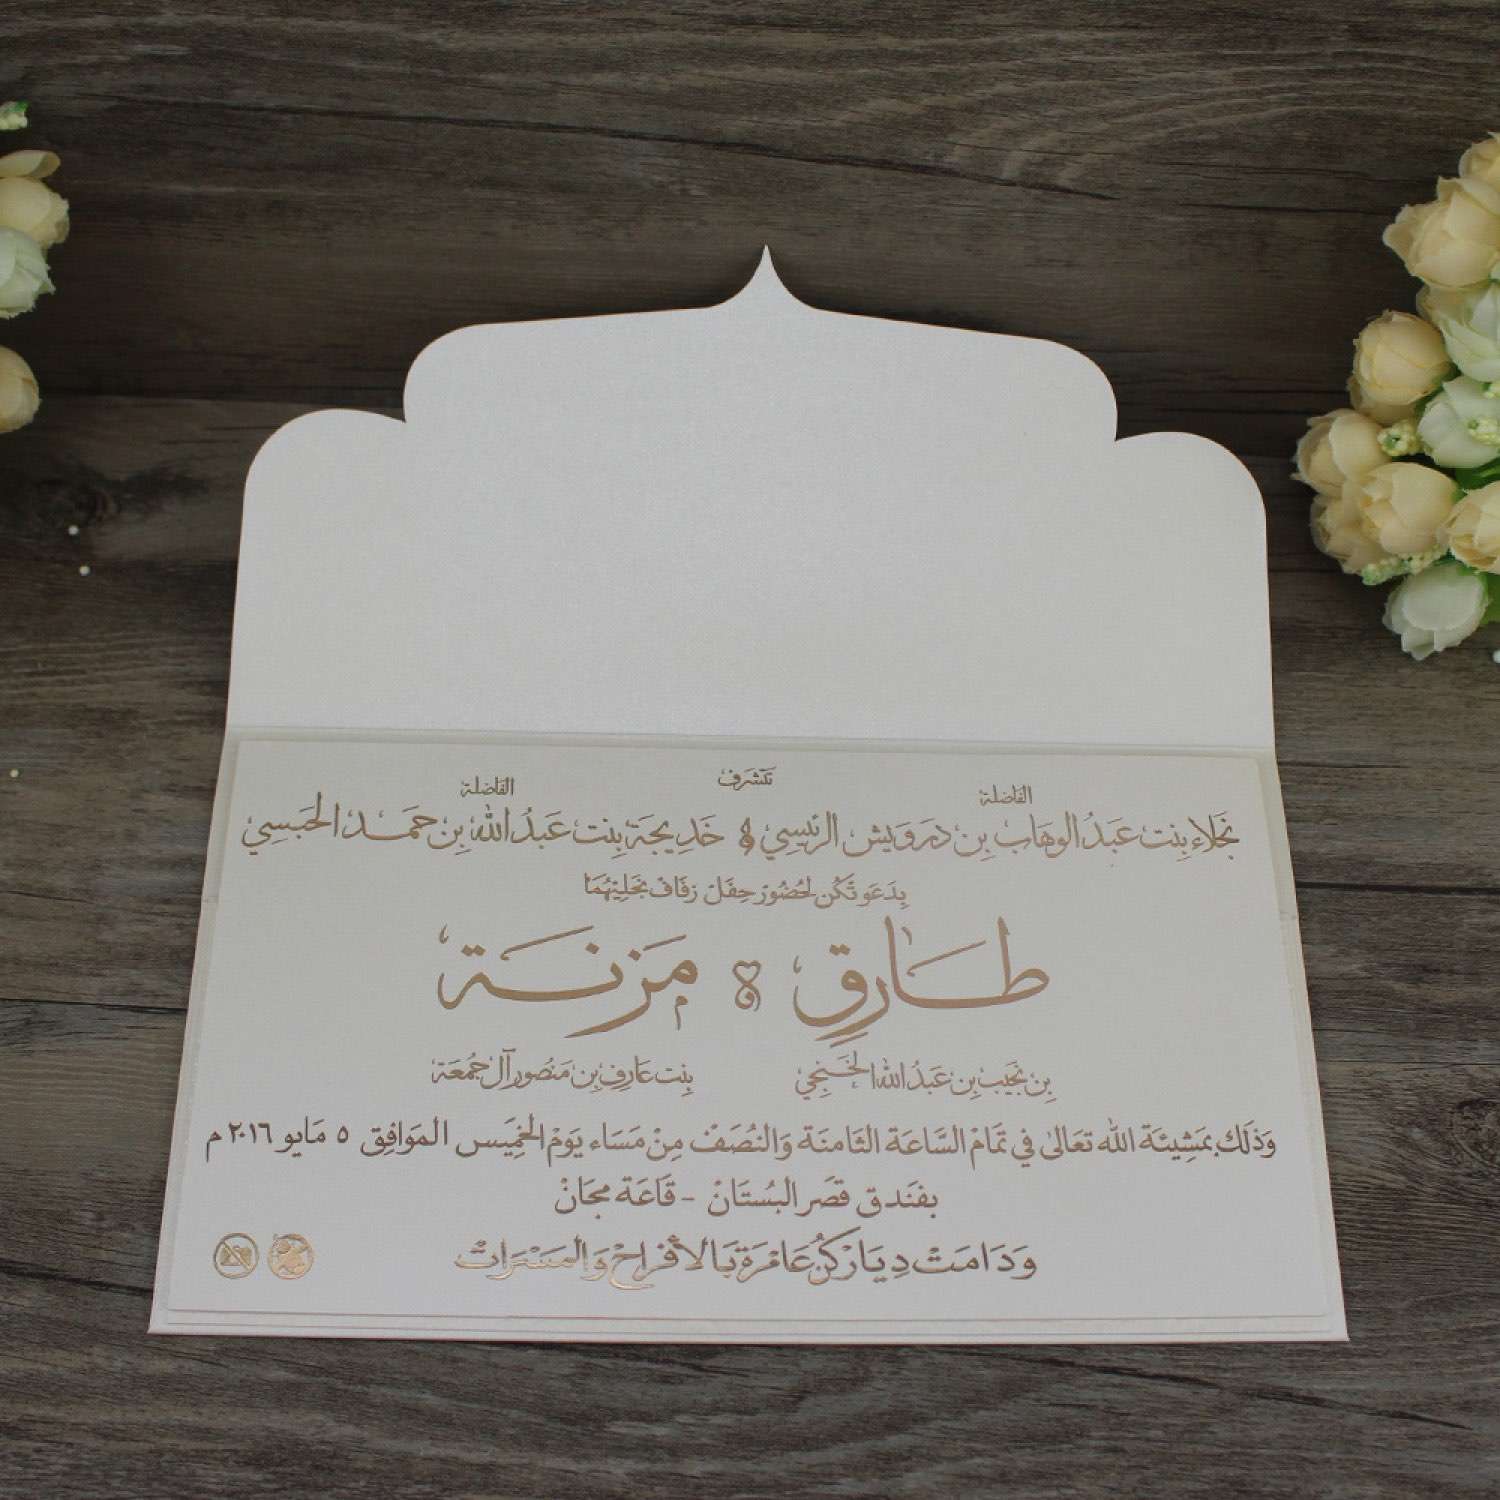 تتشرف
الفاضلة الفاضلة
نجلاء بنت عبد الوهاب بن درويش الرئيسي & خديجة بنت عبد الله بن حمد الحبسي
بدعوتكن لحضور حفل زفاف نجليهما
طارق & مزنة
بن نجيب بن عبد الله الخنجي بنت عارف بن منصور آل جمعة
وذلك بمشيئة الله تعالى في تمام الساعة الثامنة والنصف من مساء يوم الخميس الموافق ٥ مايو ٢٠١٦ م
بفندق قصر البستان - قاعة مجان
ودامت دياركن عامرة بالأفراح والمسرات